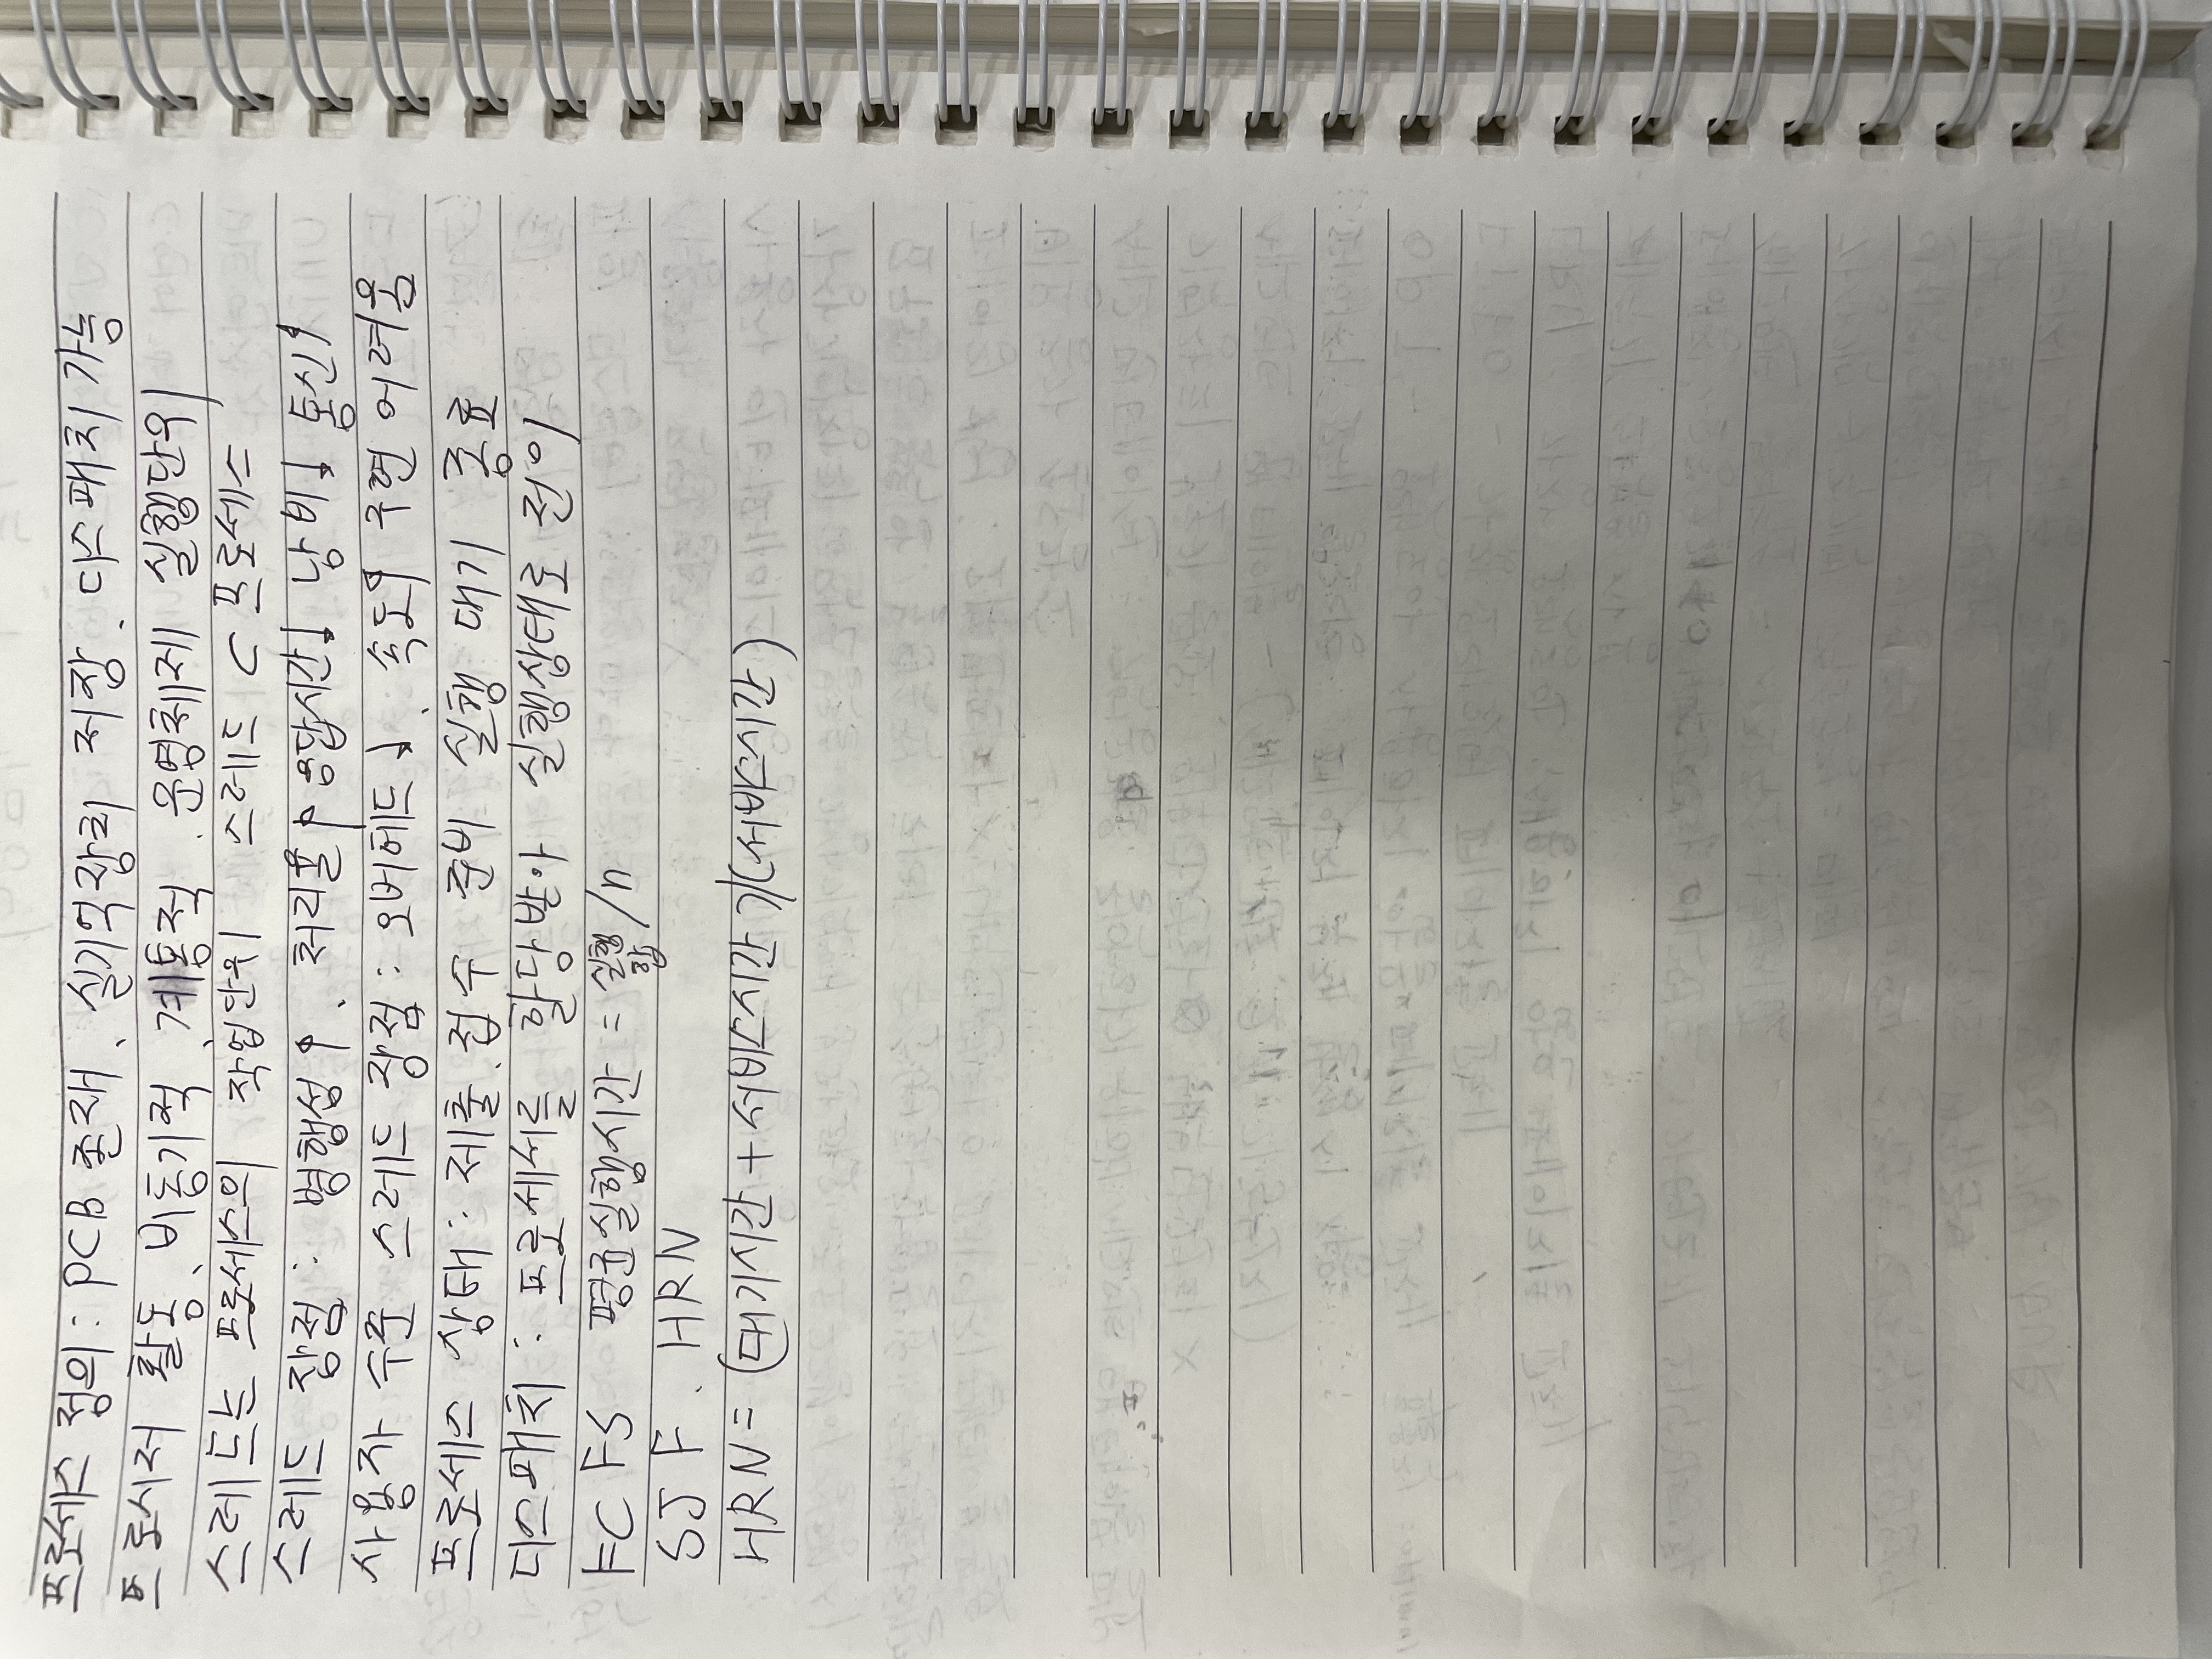 프로세스 정의 : PCB 존재、실기억장치 저장、디스패치 가능
프로시저 활동、비동기적、계통적、운영체제 실행단위
스레드는 프로세스의 작업단위 스레드 ⊂ 프로세스
스레드 장점 : 병행성↑、처리율↑ 응답시간↓ 낭비↓ 통신↑
사용자 수준 스레드 장점 : 오버헤드↓、속도↑ 구현 어려움
프로세스 상태 : 제출、접수 준비 실행 대기 종료
디스패치 : 프로세서를 할당받아 실행상태로 전이
FCFS 평균실행시간 = 실행합/n
SJF、HRN
HRN = (대기시간 + 서비스시간)/(서비스시간)